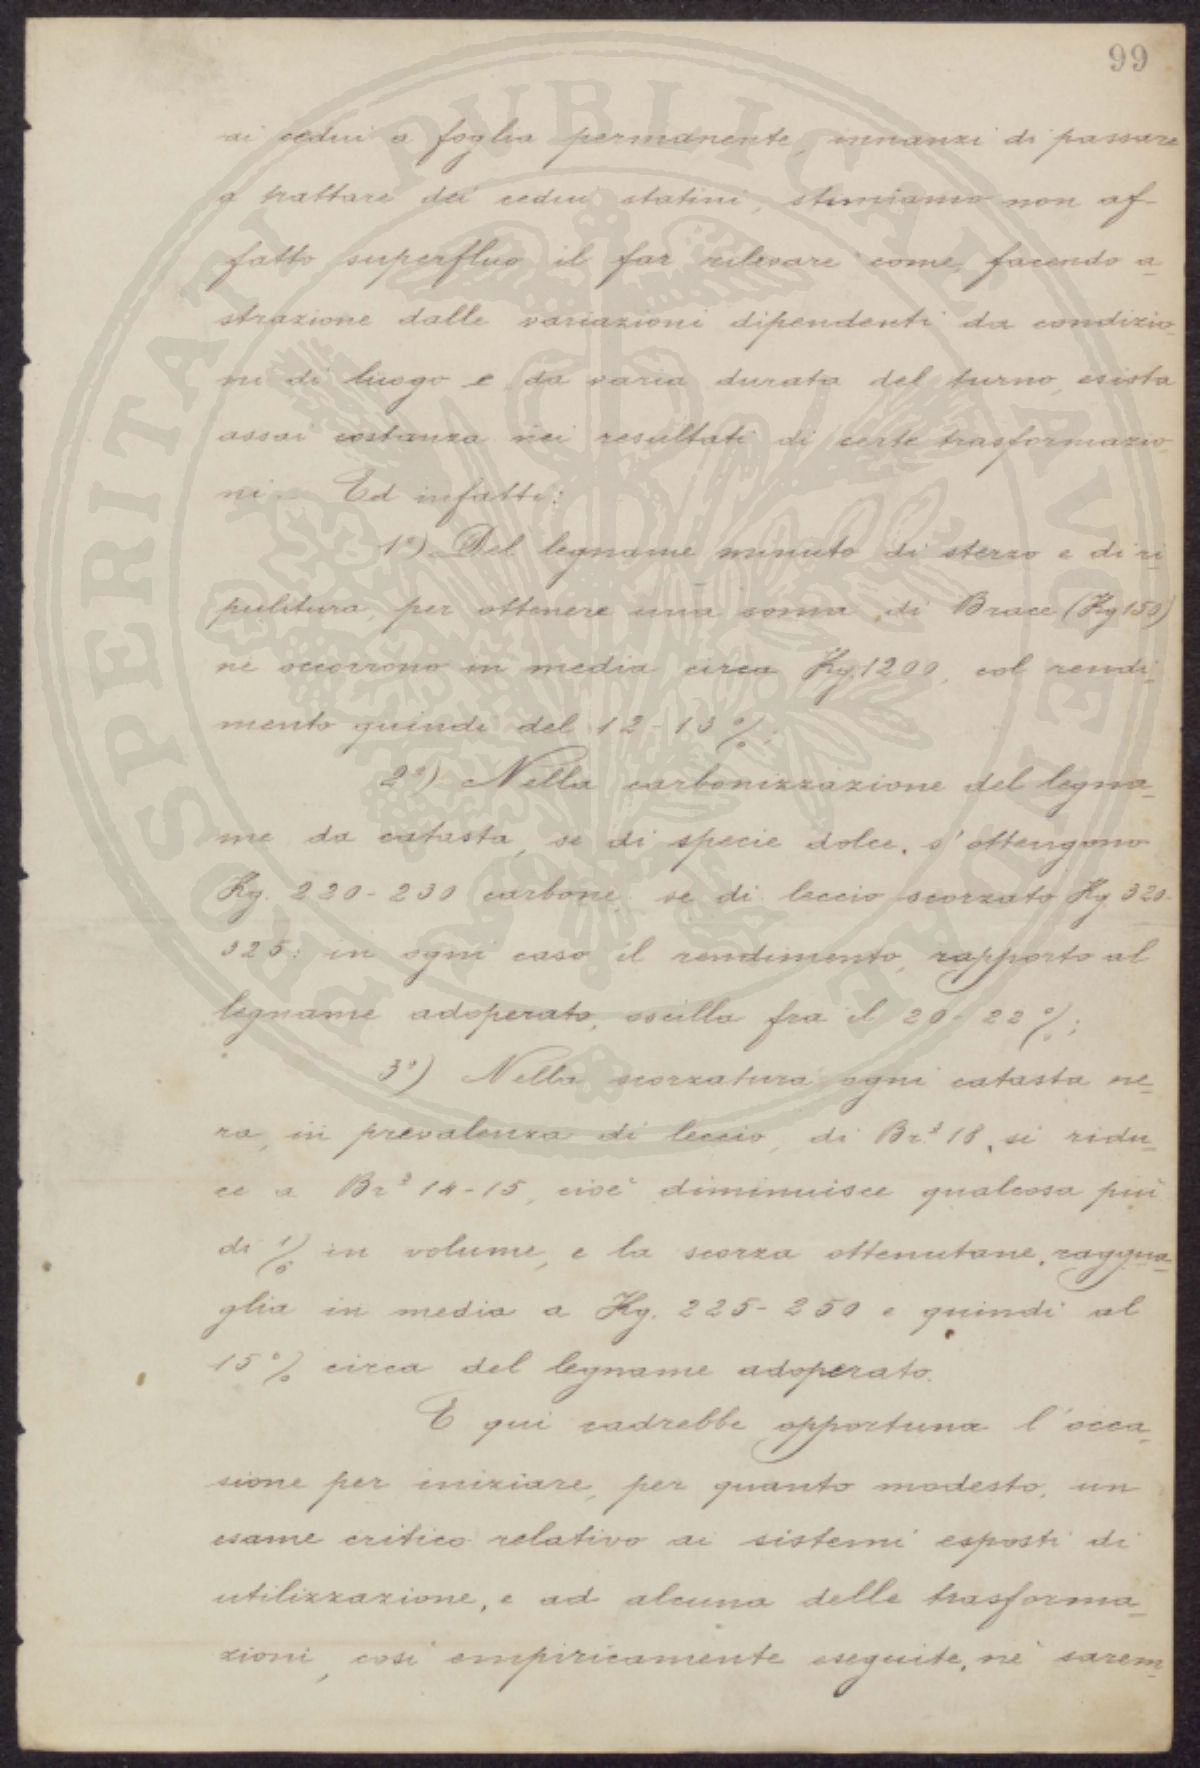 99
ai cedui a foglia permanente, innanzi di passare
a trattare dei cedui statini, stimiamo non af-
fatto superfluo il far rilevare come, facendo a-
strazione dalle variazioni dipendenti da condizio-
ni di luogo e da varia durata del turno, esista
assai costanza nei resultati di certe trasformazio-
ni. Ed infatti:
1°) Del legname minuto di sterzo e di ri-
pulitura, per ottenere una soma di Brace (Kg 150)
ne occorrono in media circa Kg. 1200, col rendi-
mento quindi del 12-13 %;
2°) Nella carbonizzazione del legna-
me da catasta, se di specie dolce, s'ottengono
Kg. 220-230 carbone; se di leccio scorzato Kg 320-
325: in ogni caso il rendimento, rapporto al
legname adoperato, oscilla fra il 20-22 %;
3°) Nella scorzatura ogni catasta ne-
ra, in prevalenza di leccio, di Br³ 18, si ridu-
ce a Br³ 14-15, cioè diminuisce qualcosa più
di 1/6 in volume, e la scorza ottenutane, raggua-
glia in media a Kg. 225-250 e quindi al
15 % circa del legname adoperato.
E qui cadrebbe opportuna l'occa-
sione per iniziare, per quanto modesto, un
esame critico relativo ai sistemi esposti di
utilizzazione, e ad alcuna delle trasforma-
zioni, così empiricamente eseguite, nè sarem-
PROSPERITATI PVBLICAE AVGENDAE